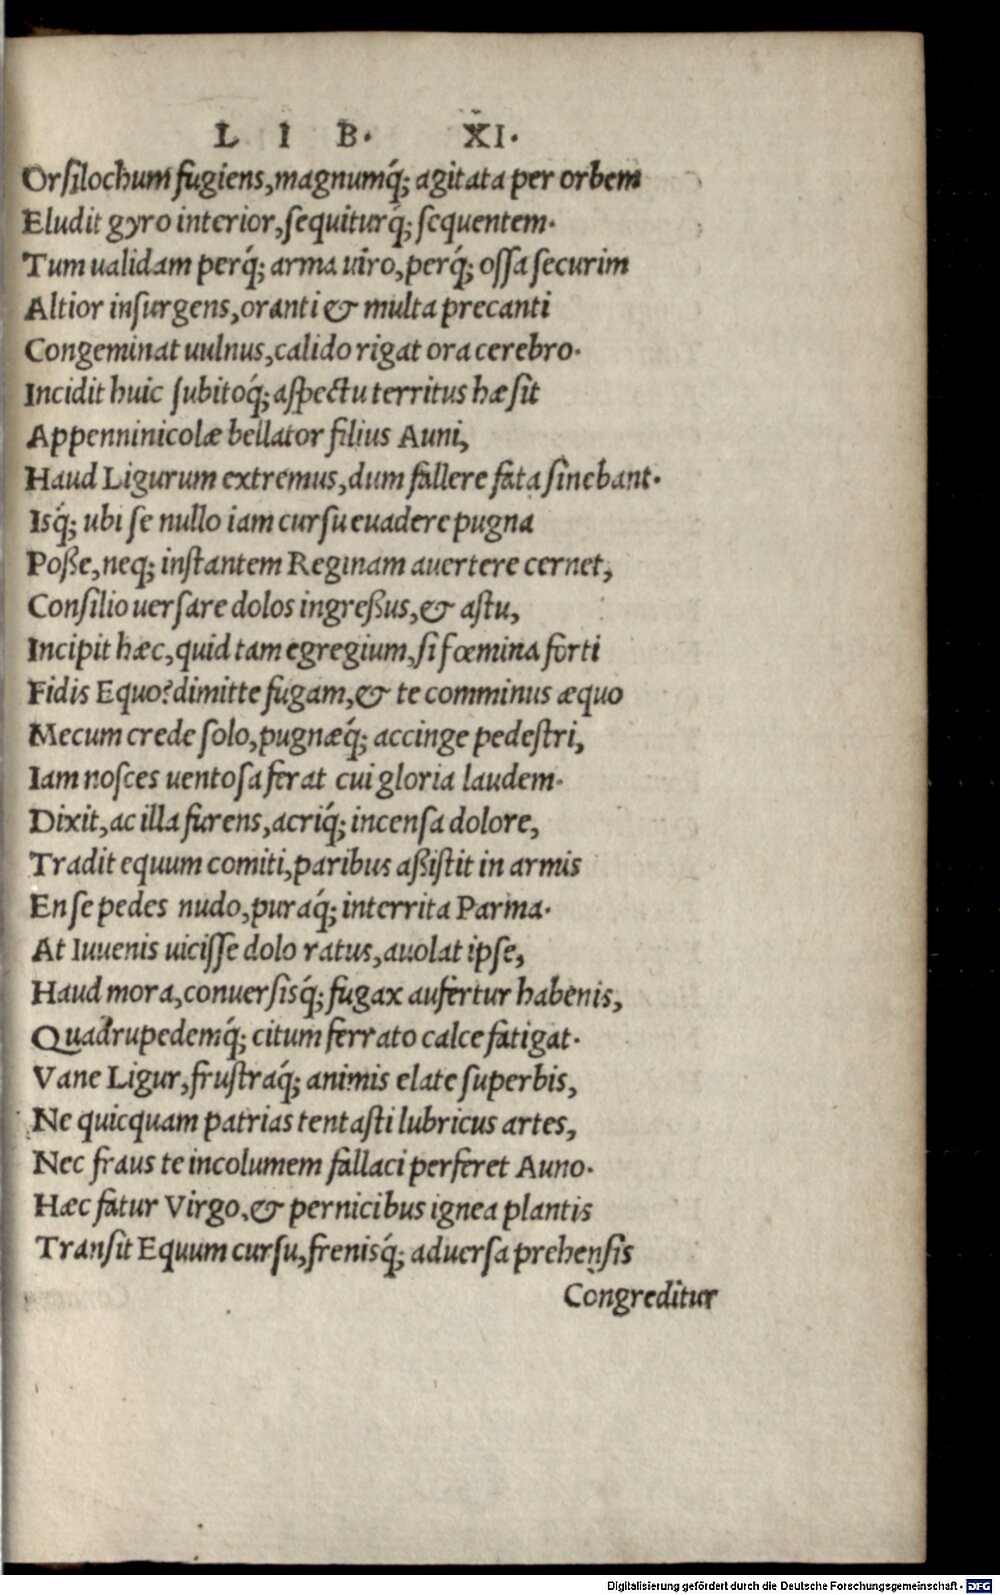 L I B. XI.
Orſilochum fugiens, magnumq́; agitata per orbem
Eludit gyro interior, ſequiturq́; ſequentem.
Tum ualidam perq́; arma uiro, perq́; oſſa ſecurim
Altior inſurgens, oranti & multa precanti
Congeminat uulnus, calido rigat ora cerebro.
Incidit huic ſubitoq́; aſpectu territus hæſit
Appenninicolæ bellator filius Auni,
Haud Ligurum extremus, dum fallere fata ſinebant.
Isq́; ubi ſe nullo iam curſu euadere pugna
Poße, neq; inſtantem Reginam auertere cernet,
Conſilio uerſare dolos ingreßus, & aſtu,
Incipit hæc, quid tam egregium, ſi fœmina forti
Fidis Equo? dimitte fugam, & te comminus æquo
Mecum crede ſolo, pugnæq́; accinge pedeſtri,
Iam noſces uentoſa ferat cui gloria laudem.
Dixit, ac illa furens, acriq́; incenſa dolore,
Tradit equum comiti, paribus aßiſtit in armis
Enſe pedes nudo, puraq́; interrita Parma.
At Iuuenis uiciſſe dolo ratus, auolat ipſe,
Haud mora, conuerſisq́; fugax aufertur habenis,
Quadrupedemq́; citum ferrato calce fatigat.
Vane Ligur, fruſtraq́; animis elate ſuperbis,
Ne quicquam patrias tentaſti lubricus artes,
Nec fraus te incolumem fallaci perferet Auno.
Hæc fatur Virgo, & pernicibus ignea plantis
Tranſit Equum curſu, frenisq́; aduerſa prehenſis
Congreditur
Digitalisierung gefördert durch die Deutsche Forschungsgemeinschaft - DFG